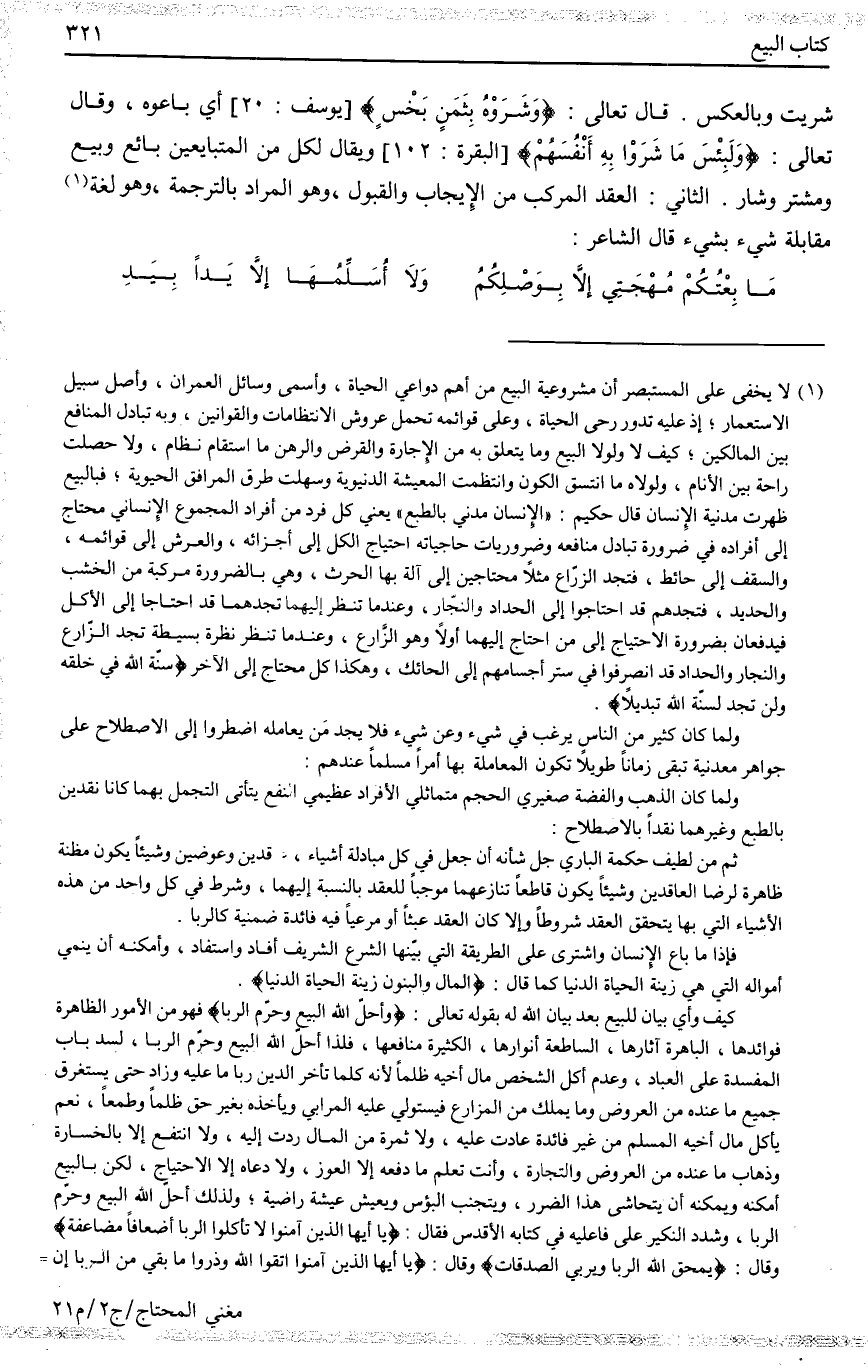 ٣٢١
كتاب البيع
شريت وبالعكس . قال تعالى : ﴿وَشَرَوْهُ بِثَمَنٍ بَخْسٍ﴾ [يوسف : ٢٠] أي باعوه ، وقال
تعالى : ﴿وَلَبِئْسَ مَا شَرَوْا بِهِ أَنْفُسَهُمْ﴾ [البقرة : ١٠٢] ويقال لكل من المتبايعين بائع وبيع
ومشتر وشار . الثاني : العقد المركب من الإيجاب والقبول ،وهو المراد بالترجمة ،وهو لغة(١)
مقابلة شيء بشيء قال الشاعر :
مَا بِعْتُكُمْ مُهْجَتِي إلاَّ بِوَصْلِكُمُ وَلَا أُسَلِّمُهَا إلاَّ يَداً بِيَدِ
(١) لا يخفى على المستبصر أن مشروعية البيع من أهم دواعي الحياة ، وأسمى وسائل العمران ، وأصل سبيل
الاستعمار ؛ إذ عليه تدور رحى الحياة ، وعلى قوائمه تحمل عروش الانتظامات والقوانين ، وبه تبادل المنافع
بين المالكين ؛ كيف لا ولولا البيع وما يتعلق به من الإجارة والقرض والرهن ما استقام نظام ، ولا حصلت
راحة بين الأنام ، ولولاه ما انتسق الكون وانتظمت المعيشة الدنيوية وسهلت طرق المرافق الحيوية ؛ فبالبيع
ظهرت مدنية الإنسان قال حكيم : «الإنسان مدني بالطبع» يعني كل فرد من أفراد المجموع الإنساني محتاج
إلى أفراده في ضرورة تبادل منافعه وضروريات حاجياته احتياج الكل إلى أجزائه ، والعرش إلى قوائمه ،
والسقف إلى حائط ، فتجد الزرّاع مثلاً محتاجين إلى آلة بها الحرث ، وهي بالضرورة مركبة من الخشب
والحديد ، فتجدهم قد احتاجوا إلى الحداد والنجّار ، وعندما تنظر إليهما تجدهما قد احتاجا إلى الأكل
فيدفعان بضرورة الاحتياج إلى من احتاج إليهما أولاً وهو الزَّارع ، وعندما تنظر نظرة بسيطة تجد الزّارع
والنجار والحداد قد انصرفوا في ستر أجسامهم إلى الحائك ، وهكذا كل محتاج إلى الآخر ﴿سنّة الله في خلقه
ولن تجد لسنّة الله تبديلاً﴾ .
ولما كان كثير من الناس يرغب في شيء وعن شيء فلا يجد مَن يعامله اضطروا إلى الاصطلاح على
جواهر معدنية تبقى زماناً طويلاً تكون المعاملة بها أمراً مسلماً عندهم :
ولما كان الذهب والفضة صغيري الحجم متماثلي الأفراد عظيمي النفع يتأتى التجمل بهما كانا نقدين
بالطبع وغيرهما نقداً بالاصطلاح :
ثم من لطيف حكمة الباري جل شأنه أن جعل في كل مبادلة أشياء ، قدين وعوضين وشيئاً يكون مظنة
ظاهرة لرضا العاقدين وشيئاً يكون قاطعاً تنازعهما موجباً للعقد بالنسبة إليهما ، وشرط في كل واحد من هذه
الأشياء التي بها يتحقق العقد شروطاً وإلا كان العقد عبثاً أو مرعياً فيه فائدة ضمنية كالربا .
فإذا ما باع الإنسان واشترى على الطريقة التي بيّنها الشرع الشريف أفاد واستفاد ، وأمكنه أن ينمي
أمواله التي هي زينة الحياة الدنيا كما قال : ﴿المال والبنون زينة الحياة الدنيا﴾ .
كيف وأي بيان للبيع بعد بيان الله له بقوله تعالى : ﴿وأحلّ الله البيع وحرّم الربا﴾ فهو من الأمور الظاهرة
فوائدها ، الباهرة آثارها ، الساطعة أنوارها ، الكثيرة منافعها ، فلذا أحلّ الله البيع وحرّم الربا ، لسد باب
المفسدة على العباد ، وعدم أكل الشخص مال أخيه ظلماً لأنه كلما تأخر الدين ربا ما عليه وزاد حتى يستغرق
جميع ما عنده من العروض وما يملك من المزارع فيستولي عليه المرابي ويأخذه بغير حق ظلماً وطمعاً ، نعم
يأكل مال أخيه المسلم من غير فائدة عادت عليه ، ولا ثمرة من المال ردت إليه ، ولا انتفع إلا بالخسارة
وذهاب ما عنده من العروض والتجارة ، وأنت تعلم ما دفعه إلا العوز ، ولا دعاه إلا الاحتياج ، لكن بالبيع
أمكنه ويمكنه أن يتحاشى هذا الضرر ، ويتجنب البؤس ويعيش عيشة راضية ؛ ولذلك أحلّ الله البيع وحرّم
الربا ، وشدد النكير على فاعليه في كتابه الأقدس فقال : ﴿يا أيها الذين آمنوا لا تأكلوا الربا أضعافاً مضاعفة﴾
وقال : ﴿يمحق الله الربا ويربي الصدقات﴾ وقال : ﴿يا أيها الذين آمنوا اتقوا الله وذروا ما بقي من الربا إن =
مغني المحتاج/ج٢/م٢١